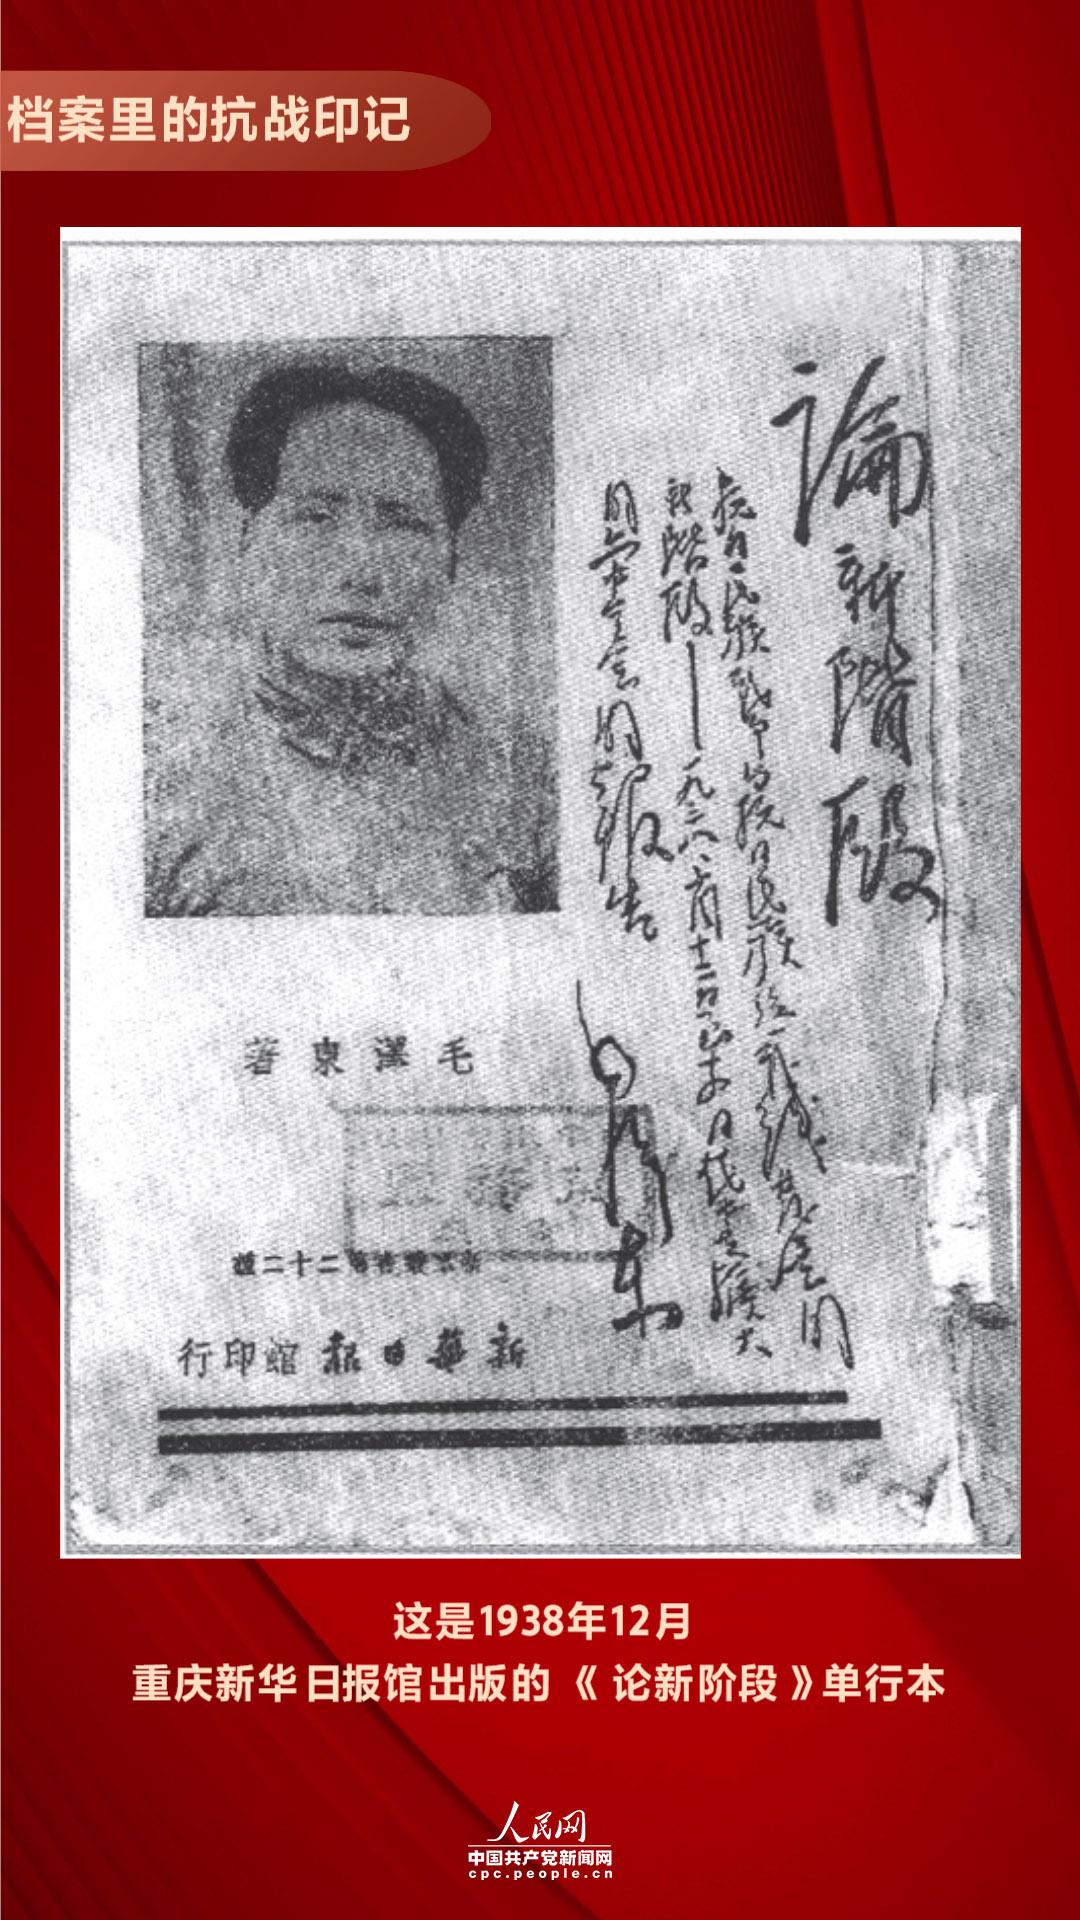 档案里的抗战印记
論新階段
抗日民族戰爭与抗日民族統一戰線發展的
新階段——一九三八
擴大
的六中全会的報告
毛澤東
毛澤東著
新華日報館印行
这是1938年12月
重庆新华日报馆出版的《论新阶段》单行本
人民网
中国共产党新闻网
cpc.people.cn